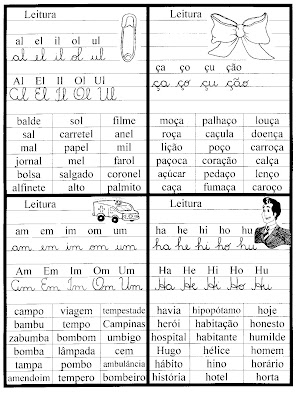 Leitura
al el il ol ul
al el il ol ul
Al El Il Ol Ul
Al El Il Ol Ul
balde sol filme
sal carretel anel
mal papel mil
jornal mel farol
bolsa salgado coronel
alfinete alto palmito
Leitura
ça ço çu ção
ça ço çu ção
moça palhaço louça
roça caçula doença
lição poço carroça
paçoca coração calça
açúcar pedaço lenço
caça fumaça caroço
Leitura
am em im om um
am em im om um
Am Em Im Om Um
Am Em Im Om Um
campo viagem tempestade
bambu tempo Campinas
zabumba bombom umbigo
bomba lâmpada cem
tampa pombo ambulância
amendoim tempero bombeiro
Leitura
ha he hi ho hu
ha he hi ho hu
Ha He Hi Ho Hu
Ha He Hi Ho Hu
havia hipopótamo hoje
herói habitação honesto
hospital habitante humilde
Hugo hélice homem
hábito hino horário
história hotel horta